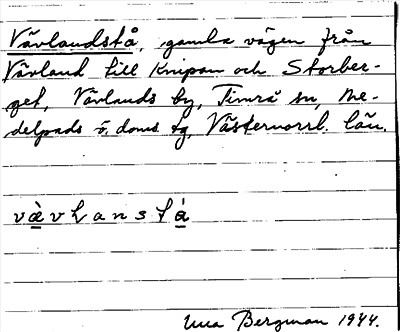 Vävlandstå, gamla vägen från
Vävland till Knipan och Storber-
get, Vävlands by, Timrå sn, Me-
delpads ö. doms. tg, Västernorrl. län.
Bergman 1944.